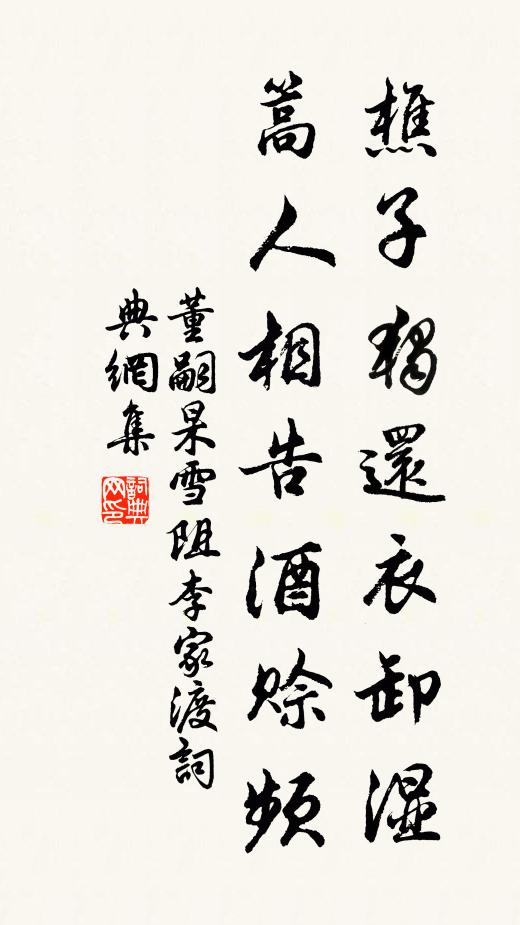 樵子獨還衣卸湿
篙人相告酒賒頻
董嗣杲雪阻李家渡詞
典網集
詞典
网印